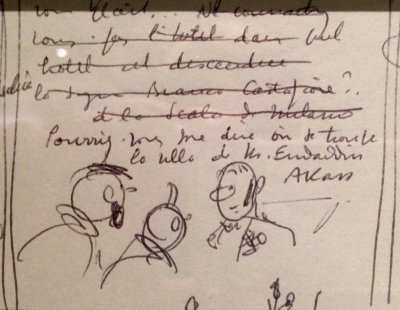 vous plaît...
vous pas l'hôtel dans quel
hôtel est descendue
la Bianca Castafiore?..
de la Scala de Milano
Pourriez-vous me dire où se trouve
la villa de M. Endaddine
Akass